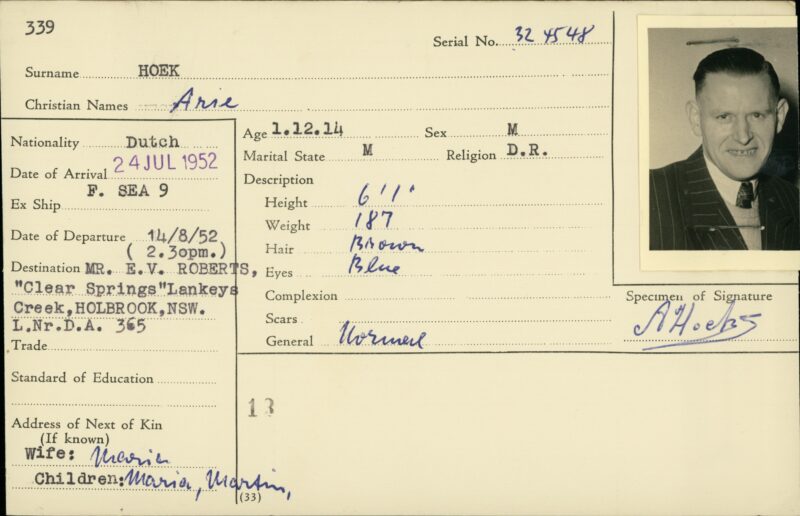 339
Serial No. 324548
Surname HOEK
Christian Names Arie
Nationality Dutch
Date of Arrival 24 JUL 1952
F. SEA 9
Ex Ship
Date of Departure 14/8/52
( 2.30pm.)
Destination MR. E.V. ROBERTS,
"Clear Springs"Lankeys
Creek,HOLBROOK,NSW.
L.Nr.D.A. 365
Trade
Standard of Education
Address of Next of Kin
(If known)
Wife: Maria
Children: Maria, Martin,
Age 1.12.14 Sex M
Marital State M Religion D.R.
Description
Height 6'1"
Weight 187
Hair Brown
Eyes Blue
Complexion
Scars
General Normal
13
(33)
Specimen of Signature
AHoek